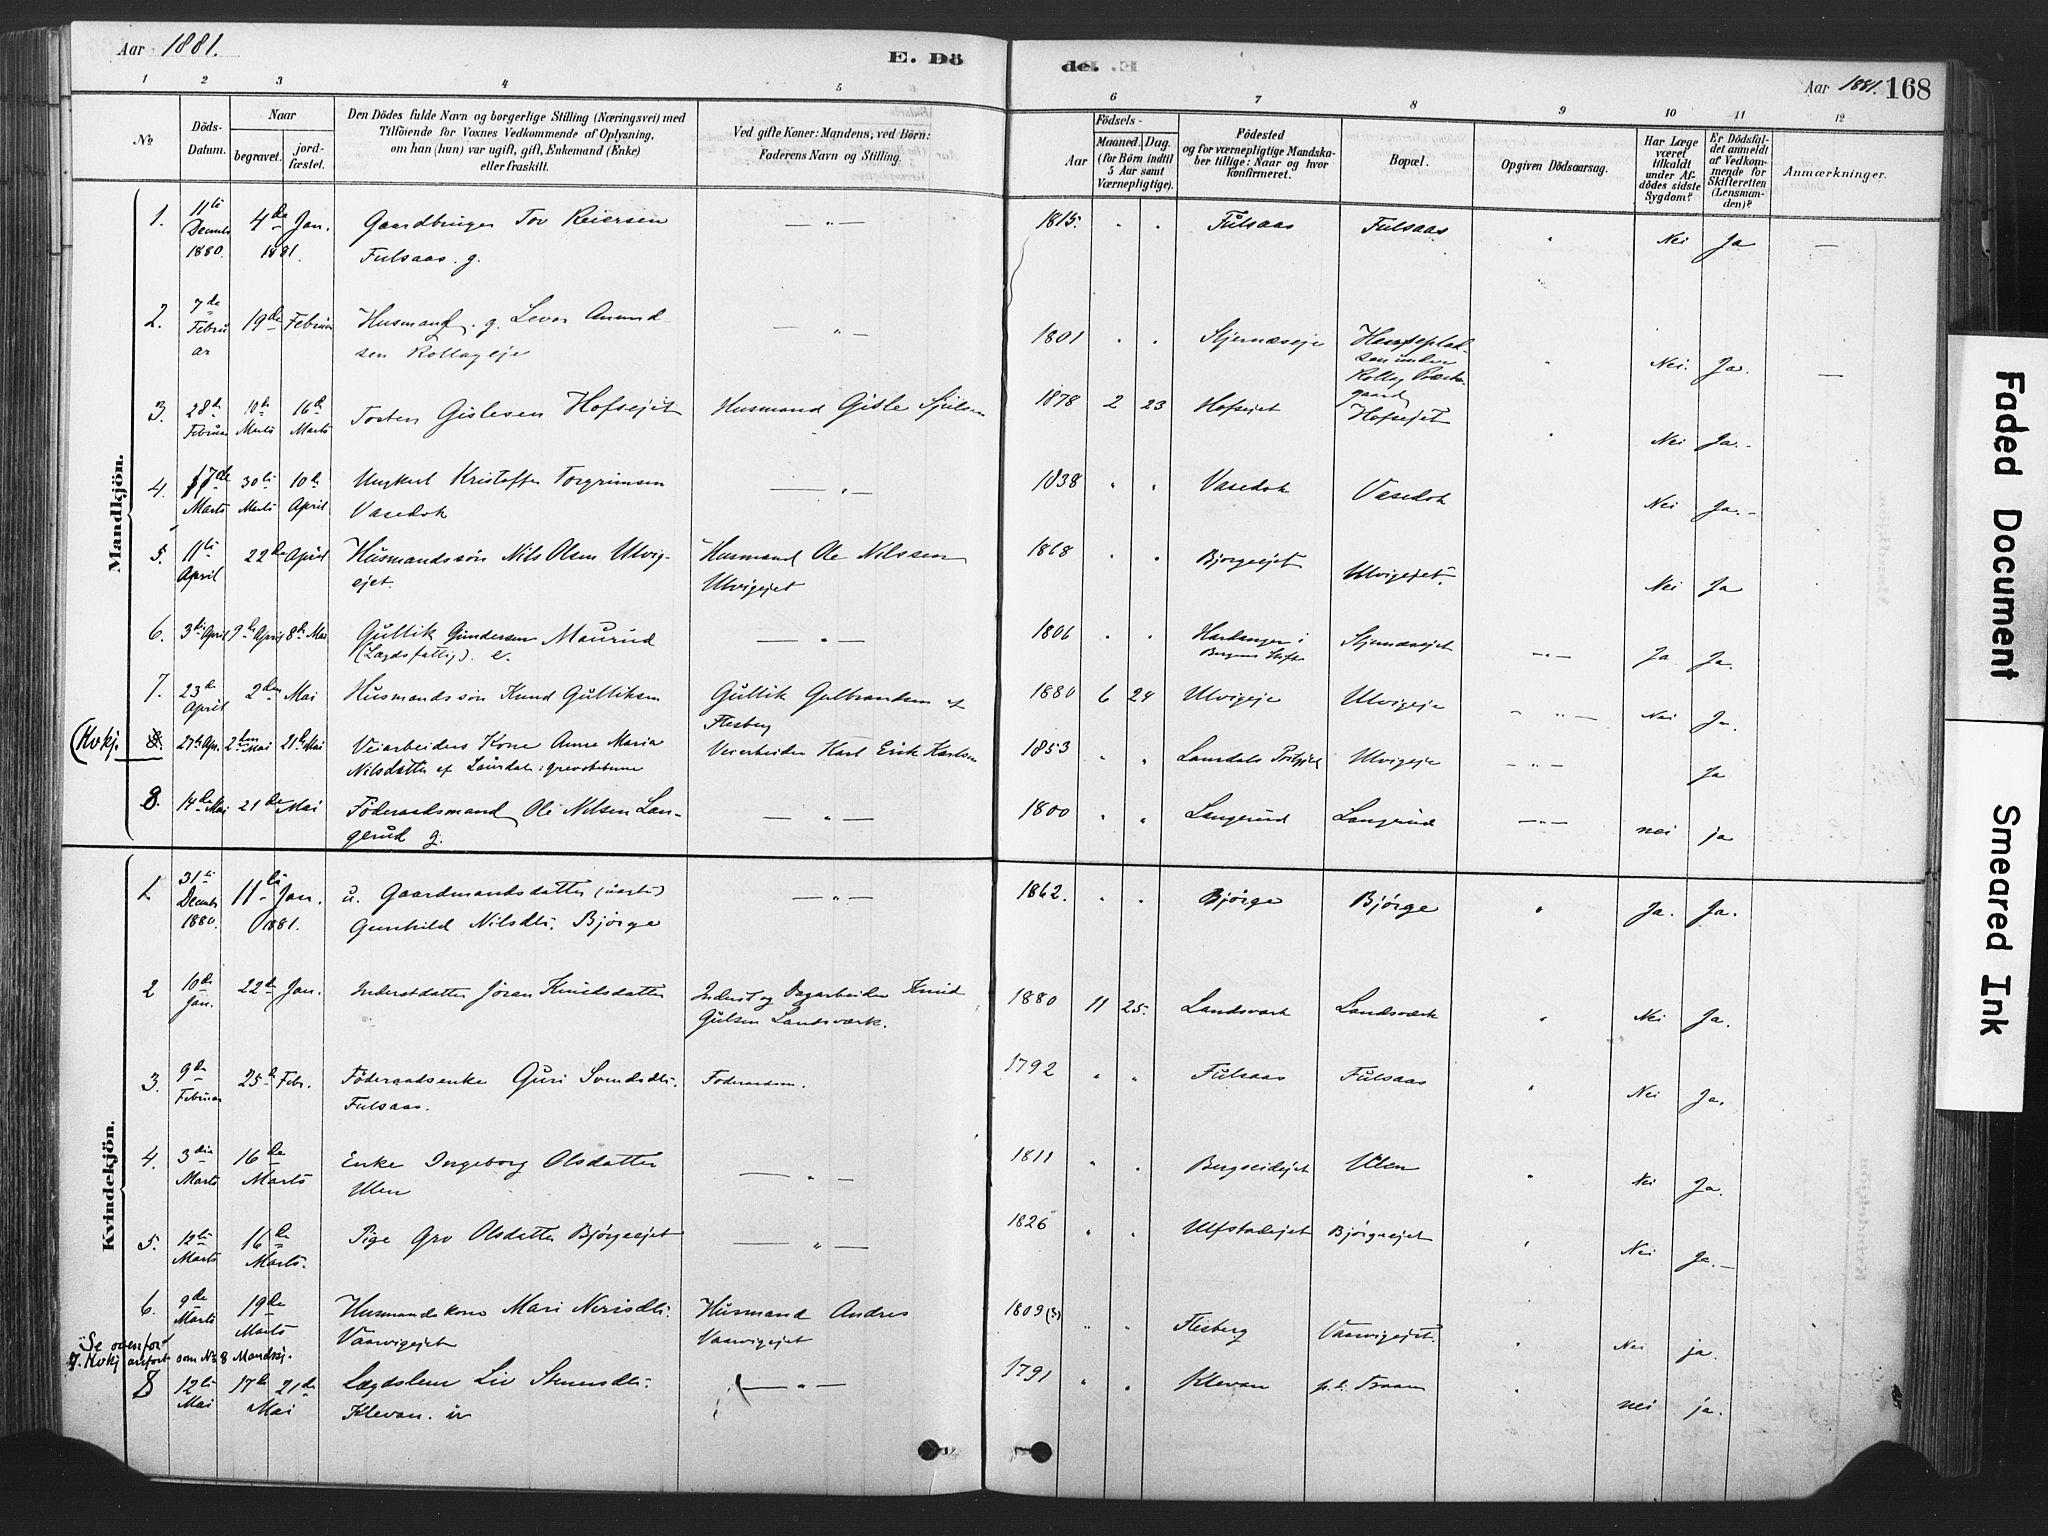 Aar 1881.
E. Dö
de.
Aar 1881. 168
1 2 3 4 5 6 7 8 9 10 11 12
No
Döds-
Datum.
Naar
begravet.
jord-
fæstet.
Den Dödes fulde Navn og borgerlige Stilling (Næringsvei) med
Tilföiende for Voxnes Vedkommende af Oplysning,
om han (hun) var ugift, gift, Enkemand (Enke)
eller fraskilt.
Ved gifte Koner: Mandens, ved Börn:
Faderens Navn og Stilling.
Födsels-
Aar
Maaned. Dag.
(for Börn indtil
5 Aar samt
Værnepligtige).
Födested
og for værnepligtige Mandska-
ber tillige: Naar og hvor
konfirmeret.
Bopæl.
Opgiven Dödsaarsag.
Har Læge
været
tilkaldt
under Af-
dödes sidste
Sygdom?
Er Dödsfal-
det anmeldt
af Vedkom-
mende for
Skifteretten
(Lensman-
den)?
Anmærkninger.
Mandkjön.
1. 11te Decmb. 1880. 4de Jan. 1881. Gaardbruger Tov Reiersen — " — 1815. " " Fulsaas Fulsaas " Nei Ja —
Fulsaas. g.
2. 7de Februar 19de Februar Husmand. g. Levor Amund- — " — 1801 " " Stjernæseje " Nei. Ja. —
sen Rollageje
Rollag Præste-
gaard
3. 28de Februar 10de Marts 16de Marts Torsten Gislesen Hofsejet Husmand Gisle 1878 2 23 Hofsejet Hofsejet " Nei Ja.-
4. 17de Marts 30te Marts 10de April Ungkarl Kristoffer Torgrimsen — " — 1838 " " Vasedok Vasedok Nei Ja.-
Vasedok
5. 11te April 22de April Husmandssøn Nils Olsen Ulvig- Husmand Ole Nilssen 1868 " " Bjørgeejet Ulvigejet. Nei Ja
ejet. Ulvigejet
6. 3die April 9de April 8de Mai Gullik Gundersen Maurud — " — 1806 " " Hardanger i Stjernæsejet — " — Ja Ja.
(Lægdsfattig). e. Bergens Stift
7. 23de April 2den Mai Husmandssøn Knud Gulliksen Gullik Gulbrandsen af 1880 6 24 Ulvigeje Ulvigeje " " — Nei Ja.
Flesberg
(Kvkj. 8. 27de Apr. 2den Mai 21de Mai Veiarbeiders Kone Anne Maria Veiarbeider Karl Erik Karlsen 1853 " " Laurdals Ulvigeje — " — Ja
Nilsdatter af Laurdal i
8. 14de Mai 21de Mai Föderaadsmand Ole Nilsen Lan- — " — 1800 " " Langerud Langerud — " — nei ja
gerud g.
Kvindekjön.
1. 31te Decmb. 1880. 11te Jan. 1881. u. Gaardmandsdatter — " — 1862. " " Bjørge Bjørge " Ja. Ja.
Gunhild Nilsdtr. Bjørge
2 10de Jan. 22de Jan. Inderstdatter Jøran Knudsdatter Inderst og Dagarbeider Knud 1880 11 25. Landsværk Landsværk " Nei Ja.
Gulsen Landsværk.
3. 9de Februar 25de Febr. Föderaadsenke Guri Svendsdtr. Föderaadsm. 1792 " " Fulsaas Fulsaas " Nei Ja.
Fulsaas.
4. 3die Marts 16de Marts Enke Ingeborg Olsdatter — " — 1811 " " Bergseidejet Ulen " Nei Ja.
Ulen
5. 12te Marts 16de Marts. Pige Gro Olsdatter Bjørgeejet — " — 1826 " " Ulfstadejet Bjørgeejet " Nei Ja.—
6. 9de Marts 19de Marts Husmandskone Mari Nerisdtr. Husmand Andres 1809 (?) " " Flesberg Vaarvigejet. " Nei ja.
Vaarvigejet Vaarvigejet
Se ovenfor
7. Kvkj anført som No 8 Mandskj.
8 12te Mai 17de 21de Mai Lægdslem Liv — " — 1791 " " Klevan p.t. Traaen " nei ja.
Klevan.
Faded Document
Smeared Ink